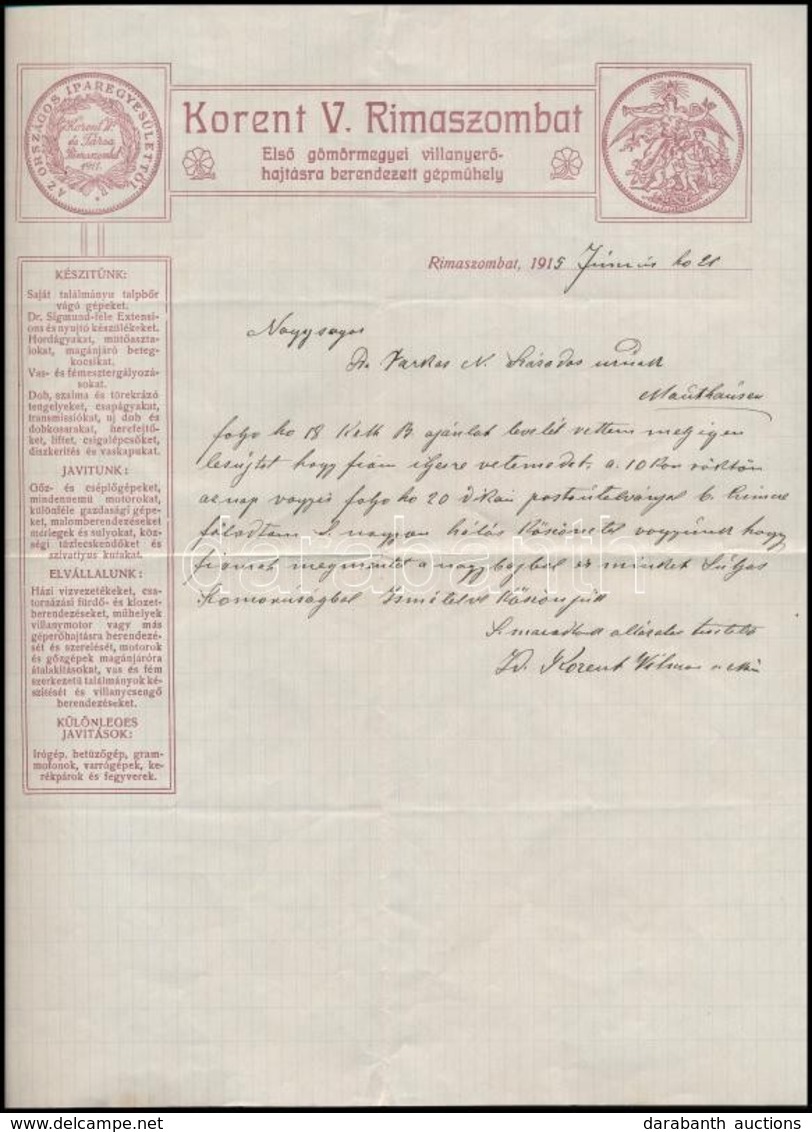 AZ ORSZÁGOS IPAREGYESÜLETTŐL
Korent V.
és Társa
Rimaszombat
1911.
Korent V. Rimaszombat
Első gömörmegyei villanyerő-
hajtásra berendezett gépműhely
Rimaszombat, 1915 Június hó 21
KÉSZITÜNK:
Saját találmányu talpbőr
vágó gépeket.
Dr. Sigmund-féle Extensi-
ons és nyujtó készülékeket.
Hordágyakat, műtőaszta-
lokat, magánjáró beteg-
kocsikat.
Vas- és fémesztergályozá-
sokat.
Dob, szalma és törekrázó
tengelyeket, csapágyakat,
transmissiókat, uj dob és
dobkosarakat, herefejtő-
ket, liftet, csigalépcsőket,
diszkerités és vaskapukat.
JAVITUNK:
Gőz- és cséplőgépeket,
mindennemü motorokat,
különféle gazdasági gépe-
ket, malomberendezéseket
mérlegek és sulyokat, köz-
ségi tüzlecskendőket és
szivattyus kutakat.
ELVÁLLALUNK:
Házi vizvezetékeket, csa-
tornázási fürdő- és klozet-
berendezéseket, műhelyek
villanymotor vagy más
géperőhajtásra berendezé-
sét és szerelését, motorok
és gőzgépek magánjáróra
átalakitásokat, vas és fém
szerkezetü találmányok ké-
szitését és villanycsengő
berendezéseket.
KÜLÖNLEGES
JAVITÁSOK:
Irógép, betüzőgép, gram-
mofonok, varrógépek, ke-
rékpárok és fegyverek.
Nagyságos
Dr. Farkas N. Százados urnak
Mauthausen
folyo ho 18 Kelt B. ajánlat levelét vettem mely igen
lesujtot hogy fiam ilyesre vetemedet, a 10 Kor rögtön
aznap vagyis folyo ho 20 dikán postautalványal b. Cimere
föladtam S nagyon hálás Köszönetel vagyunk hogy
fiunak megmentet a nagy bajbol es minket Sulyos
Szomoruságbol Ismételve Köszönjük
S maradok alázatos tisztelo
Id. Korent Vilmos
darabanth
darabanth auctions